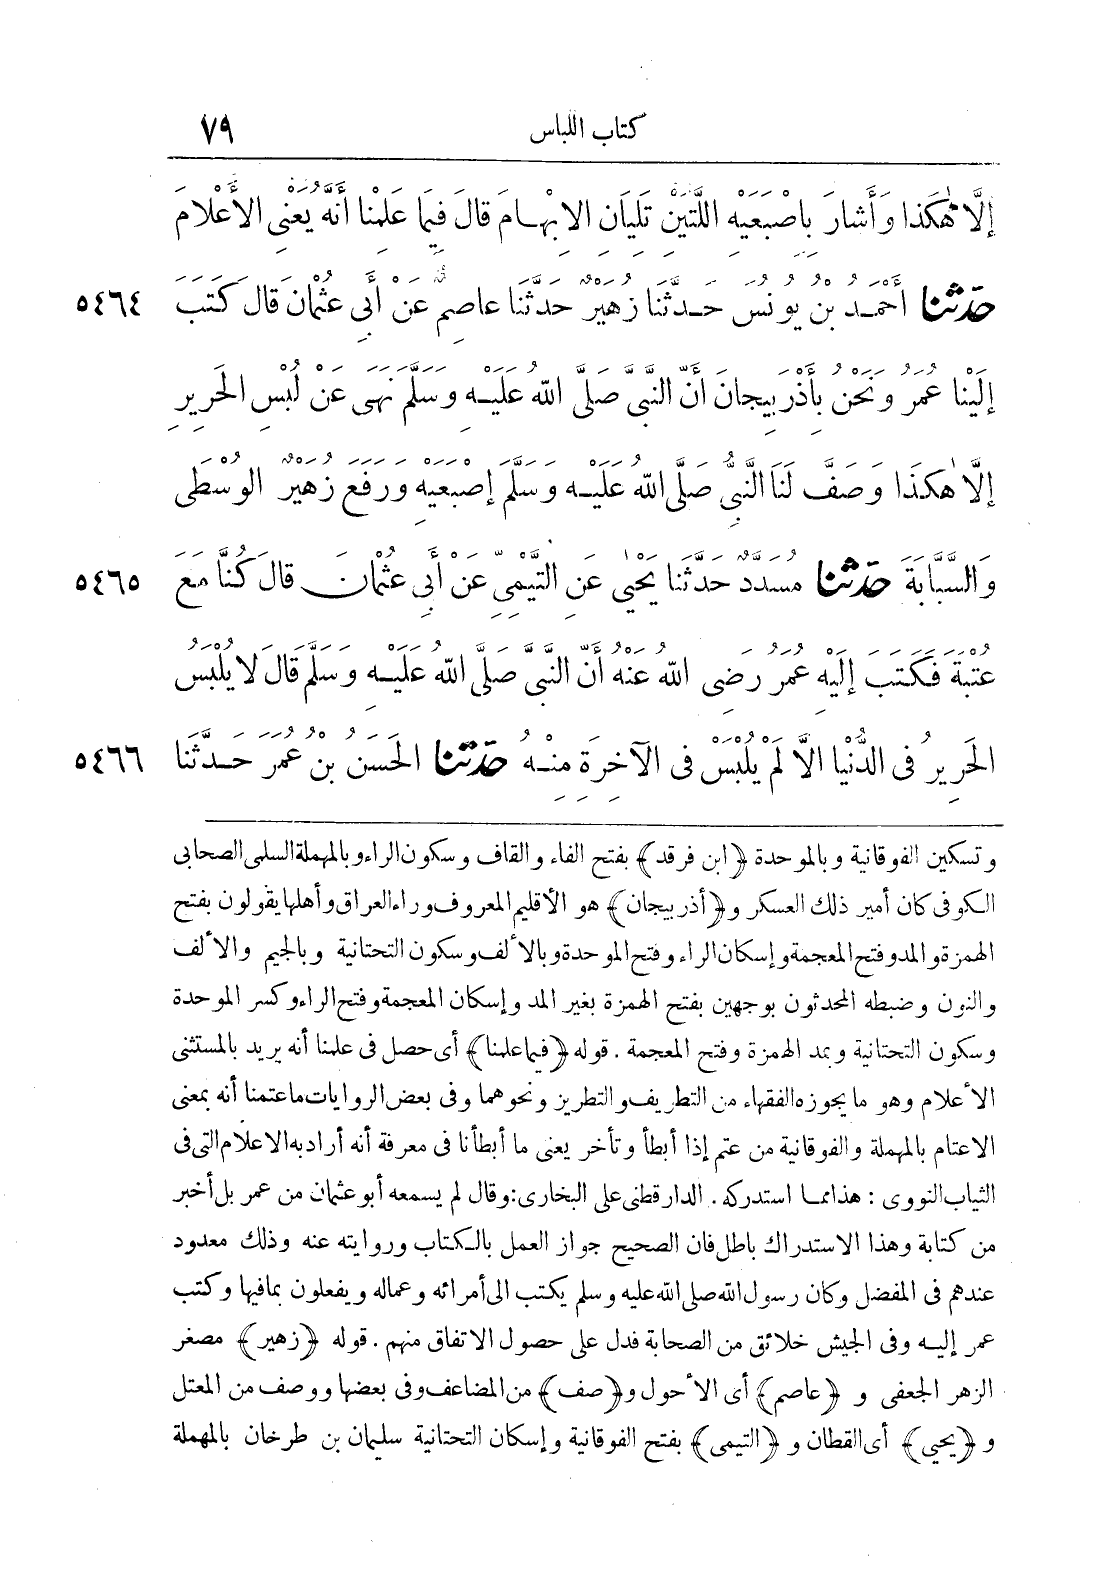 كتاب اللباس ٧٩
إِلَّا هٰكَذَا وَأَشَارَ بِاصْبَعَيْهِ اللَّتَيْنِ تَلِيَانِ الابْهَامَ قَالَ فِيمَا عَلِمْنَا أَنَّهُ يَعْنِى الأَعْلَامَ
٥٤٦٤ حَدَّثَنَا أَحْمَدُ بْنُ يُونُسَ حَدَّثَنَا زُهَيْرٌ حَدَّثَنَا عَاصِمٌ عَنْ أَبِى عُثْمَانَ قَالَ كَتَبَ
إِلَيْنَا عُمَرُ وَنَحْنُ بِأَذْرَبِيجَانَ أَنَّ النَّبِىَّ صَلَّى اللهُ عَلَيْهِ وَسَلَّمَ نَهَى عَنْ لُبْسِ الْحَرِيرِ
إِلَّا هٰكَذَا وَصَفَّ لَنَا النَّبِىُّ صَلَّى اللهُ عَلَيْهِ وَسَلَّمَ إِصْبَعَيْهِ وَرَفَعَ زُهَيْرٌ الْوُسْطَى
٥٤٦٥ وَالسَّبَّابَةَ حَدَّثَنَا مُسَدَّدٌ حَدَّثَنَا يَحْيٰى عَنِ التَّيْمِىِّ عَنْ أَبِى عُثْمَانَ قَالَ كُنَّا مَعَ
عُتْبَةَ فَكَتَبَ إِلَيْهِ عُمَرُ رَضِىَ اللهُ عَنْهُ أَنَّ النَّبِىَّ صَلَّى اللهُ عَلَيْهِ وَسَلَّمَ قَالَ لَا يُلْبَسُ
٥٤٦٦ الْحَرِيرُ فِى الدُّنْيَا الَّا لَمْ يُلْبَسْ فِى الآخِرَةِ مِنْهُ حَدَّثَنَا الْحَسَنُ بْنُ عُمَرَ حَدَّثَنَا
وتسكين الفوقانية وبالموحدة ﴿ابن فرقد﴾ بفتح الفاء والقاف وسكون الراء وبالمهملة السلمى الصحابى
الكوفى كان أمير ذلك العسكر و﴿أذربيجان﴾ هو الأقليم المعروف وراء العراق وأهلها يقولون بفتح
الهمزة والمد وفتح المعجمة وإسكان الراء وفتح الموحدة وبالألف وسكون التحتانية وبالجيم والألف
والنون وضبطه المحدثون بوجهين بفتح الهمزة بغير المد وإسكان المعجمة وفتح الراء وكسر الموحدة
وسكون التحتانية وبمد الهمزة وفتح المعجمة . قوله ﴿فيما علمنا﴾ أى حصل فى علمنا أنه يريد بالمستثنى
الأعلام وهو ما يجوزه الفقهاء من التطريف والتطريز ونحوهما وفى بعض الروايات ماعتمنا أنه بمعنى
الاعتام بالمهملة والفوقانية من عتم إذا أبطأ وتأخر يعنى ما أبطأنا فى معرفة أنه أراد به الاعلام التى فى
الثياب النووى : هذا مما استدركه . الدارقطنى على البخارى: وقال لم يسمعه أبو عثمان من عمر بل أخبر
من كتابة وهذا الاستدراك باطل فان الصحيح جواز العمل بالكتاب وروايته عنه وذلك معدود
عندهم فى المفضل وكان رسول الله صلى الله عليه وسلم يكتب الى أمرائه وعماله ويفعلون بما فيها وكتب
عمر إليه وفى الجيش خلائق من الصحابة فدل على حصول الاتفاق منهم . قوله ﴿زهير﴾ مصغر
الزهر الجعفى و ﴿عاصم﴾ أى الأحول و﴿صف﴾ من المضاعف وفى بعضها ووصف من المعتل
و ﴿يحيى﴾ أى القطان و ﴿التيمى﴾ بفتح الفوقانية وإسكان التحتانية سليمان بن طرخان بالمهملة